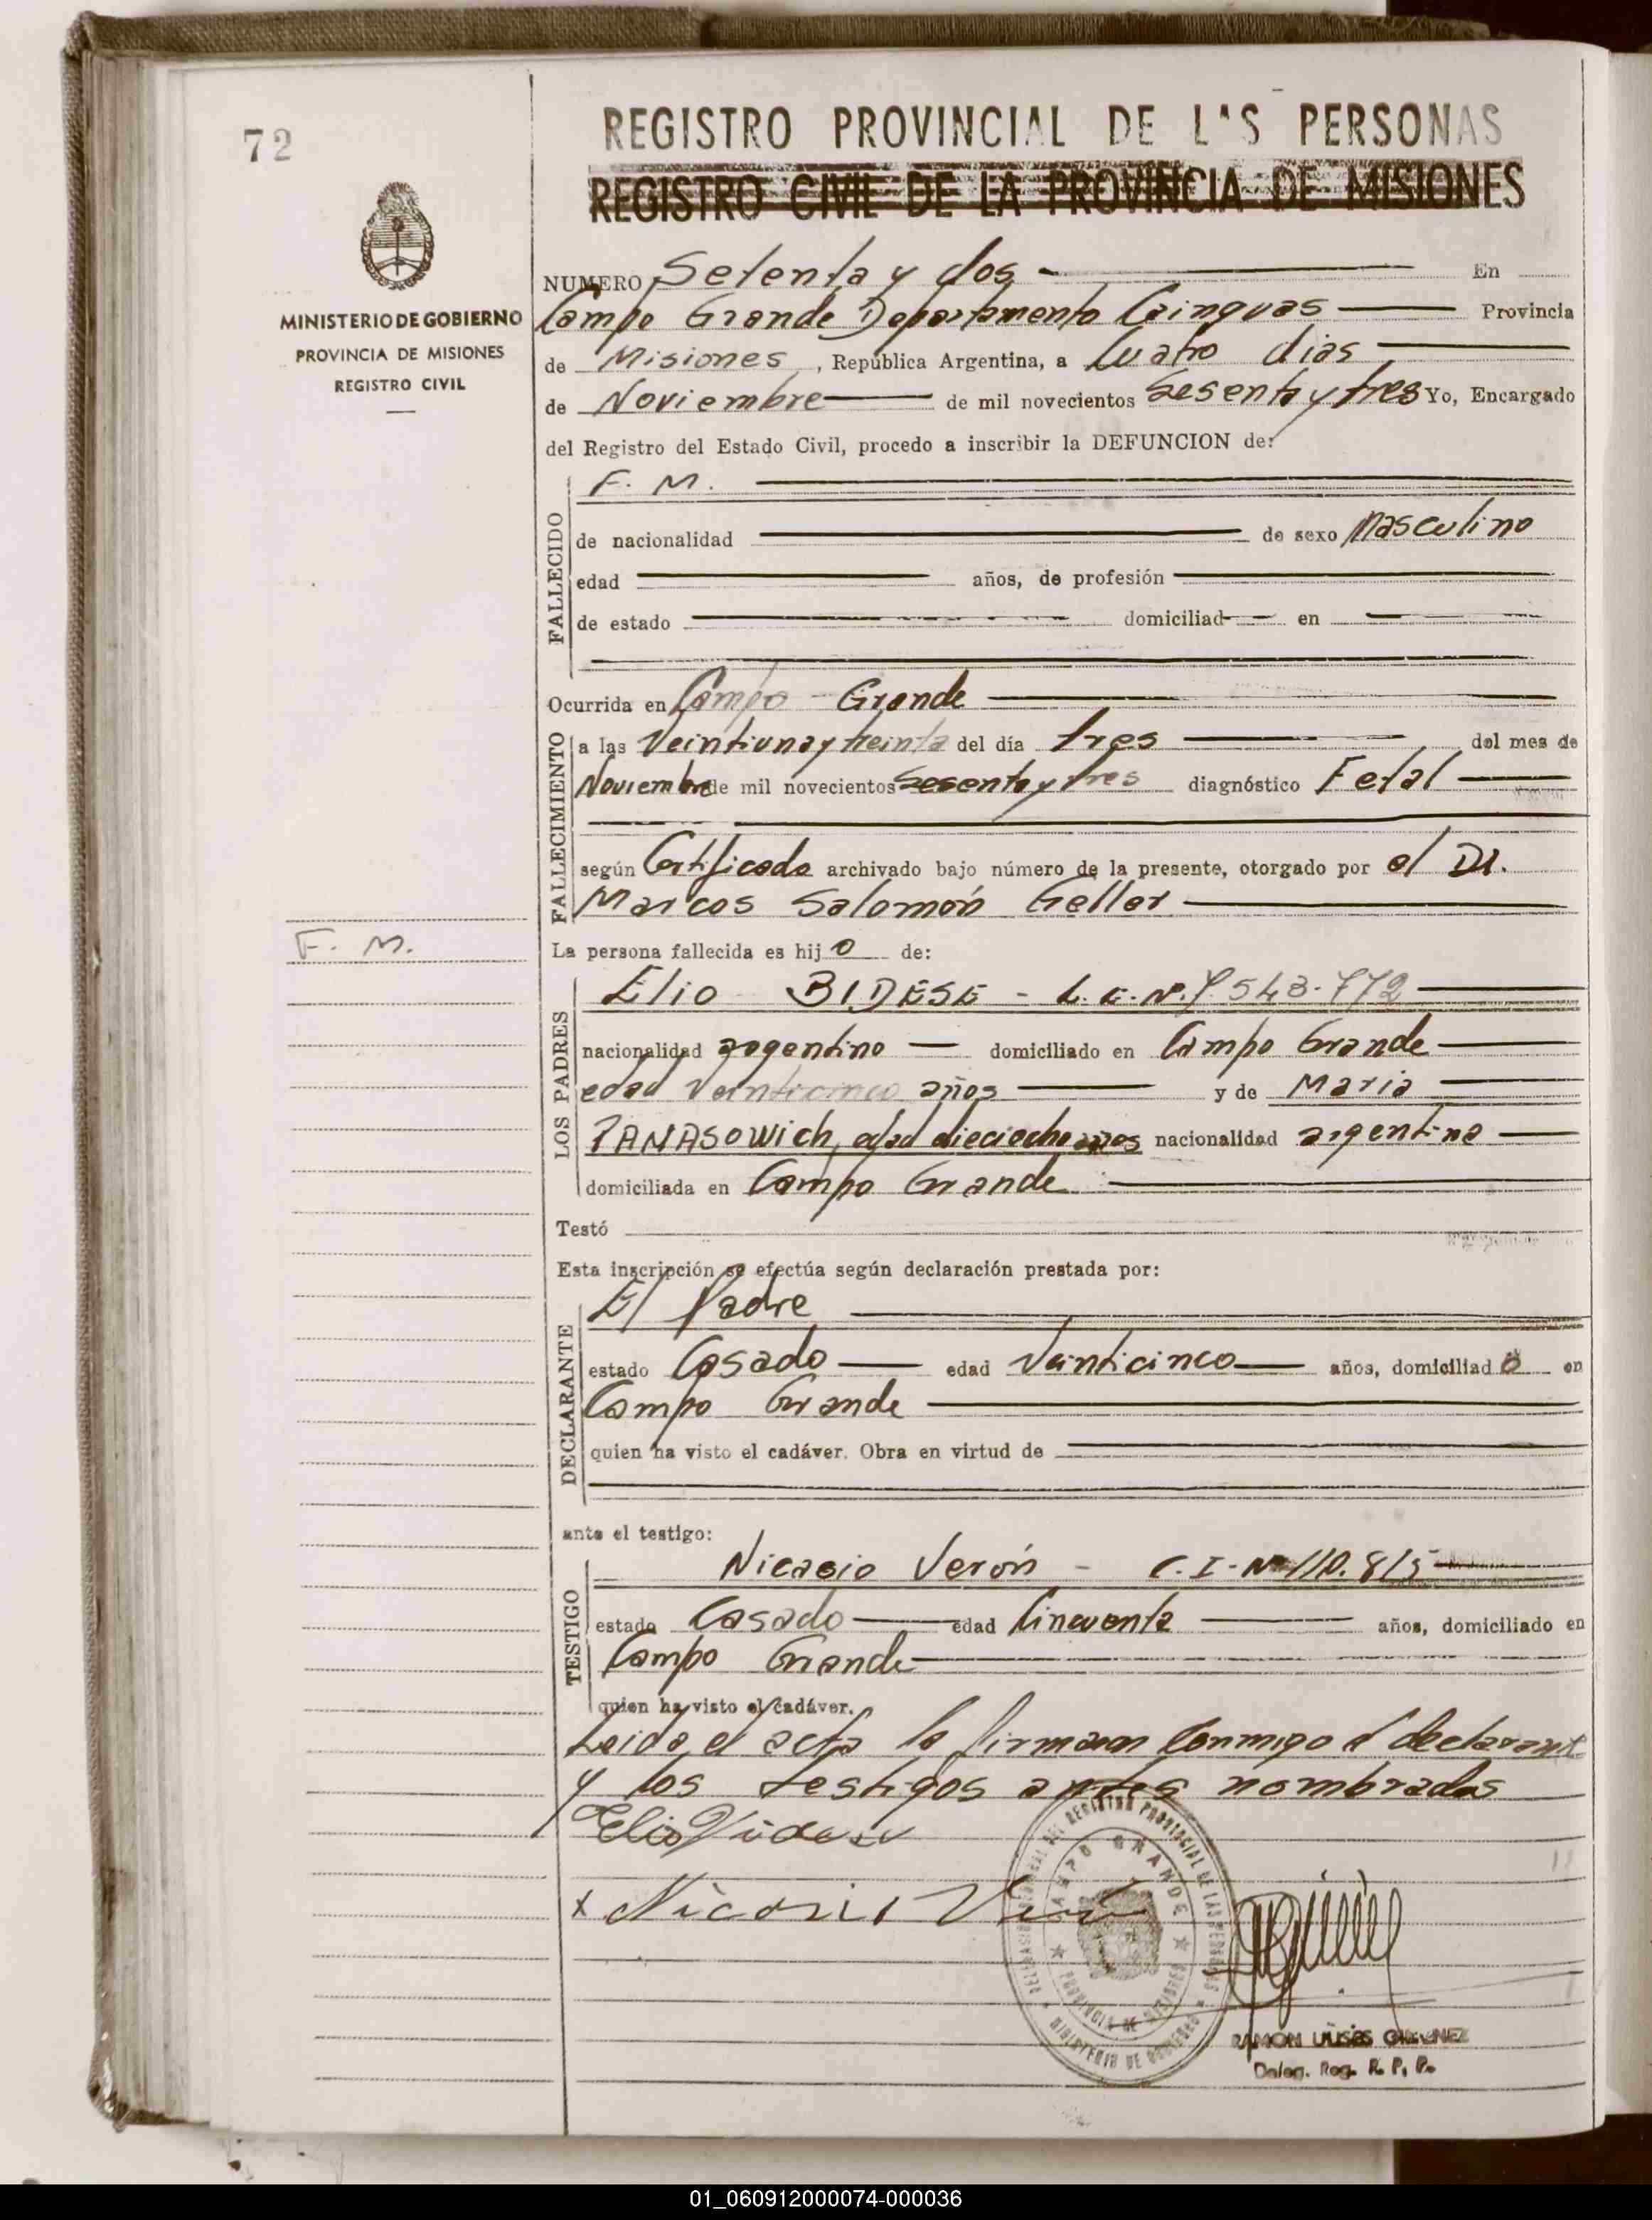 72
REGISTRO PROVINCIAL DE L'S PERSONAS
REGISTRO CIVIL DE LA PROVINCIA DE MISIONES
MINISTERIO DE GOBIERNO
PROVINCIA DE MISIONES
REGISTRO CIVIL
NUMERO Setenta y dos - En
Campo Grande Departamento Cainguas Provincia
de Misiones, República Argentina, a Cuatro dias
de Noviembre de mil novecientos Sesenta y tres Yo, Encargado
del Registro del Estado Civil, procedo a inscribir la DEFUNCION de:
F. M.
FALLECIDO
de nacionalidad de sexo Masculino
edad años, de profesión
de estado domiciliad en
Ocurrida en Campo Grande
FALLECIMIENTO
a las Veintiuna y treinta del día tres del mes de
Noviembre de mil novecientos Sesenta y tres diagnóstico Fetal
según Certificado archivado bajo número de la presente, otorgado por el Dr.
Marcos Salomón Geller
F. M.
La persona fallecida es hijo de:
LOS PADRES
Elio BIDESE - L.E.Nº.7.543.772
nacionalidad argentino domiciliado en Campo Grande
edad Veinticinco años y de Maria
PANASOWich, edad dieciocho años nacionalidad argentina
domiciliada en Campo Grande
Testó
Esta inscripción se efectúa según declaración prestada por:
DECLARANTE
El Padre
estado Casado edad Veinticinco años, domiciliado en
Campo Grande
quien ha visto el cadáver. Obra en virtud de
ante el testigo:
TESTIGO
Nicasio Verón - C.I-Nº110.815
estado Casado edad Cincuenta años, domiciliado en
Campo Grande
quien ha visto el cadáver.
Leida el acta la firman Conmigo el declarante
y los testigos antes nombrados
Elio Videse
x Nicasio Verón
DELEGACION REGIONAL DEL REGISTRO PROVINCIAL DE LAS PERSONAS
CAMPO GRANDE
PROVINCIA DE MISIONES
MINISTERIO DE GOBIERNO
RAMON ULISES GIMENEZ
Deleg. Reg. R. P. P.
01_060912000074-000036